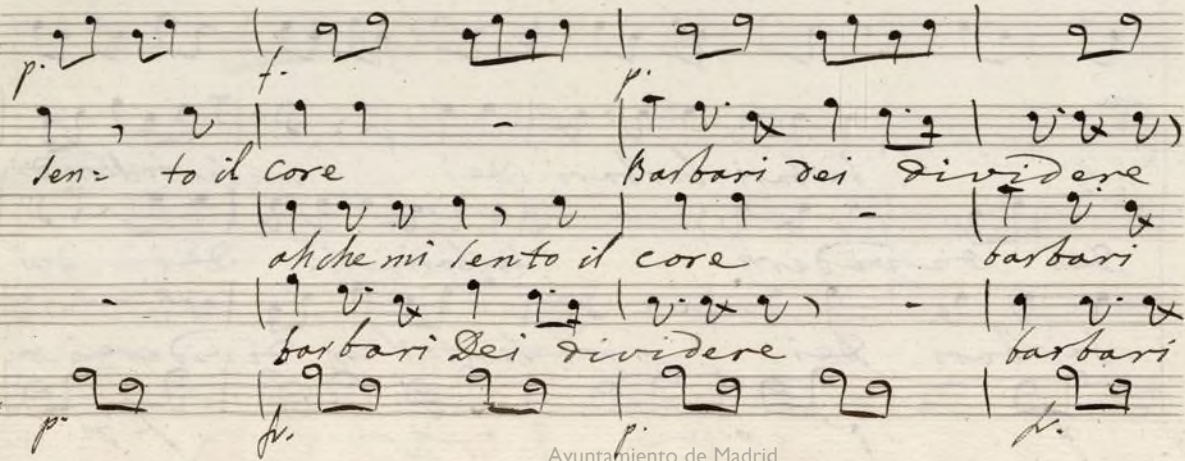 p. f. p.
sen= to il core Barbari dei dividere
ahche mi sento il core barbari
barbari Dei dividere barbari
p. fr. p. fr.
Ayuntamiento de Madrid